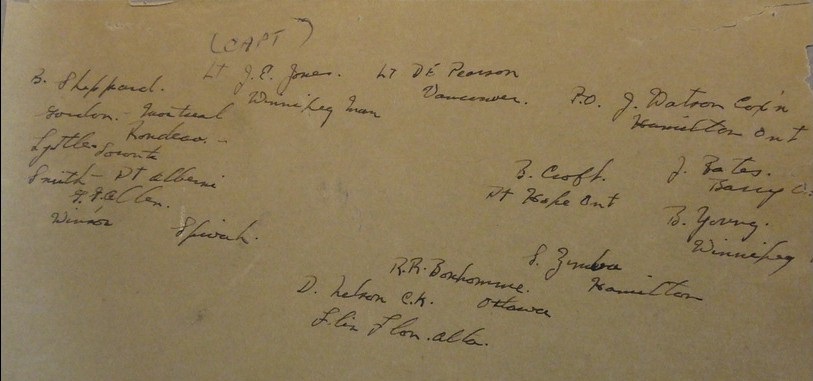 (CAPT)
B. Sheppard.
Lt J.E. Jones.
Winnipeg Man
Lt D E Pearson
Vancouver.
P.O. J. Watson Cox'n
Hamilton Ont
Gordon - Montreal
Rondeau. -
Lyttle - Toronto
Smith - Pt Alberni
Allen.
Winsor
Spivak.
B. Croft.
Pt Hope Ont
J. Bates.
B. Young.
Winnipeg
S. Zimba
Hamilton
R.R. Bonhomme.
Ottawa
D. Nelson C.K.
Flin Flon. alta.